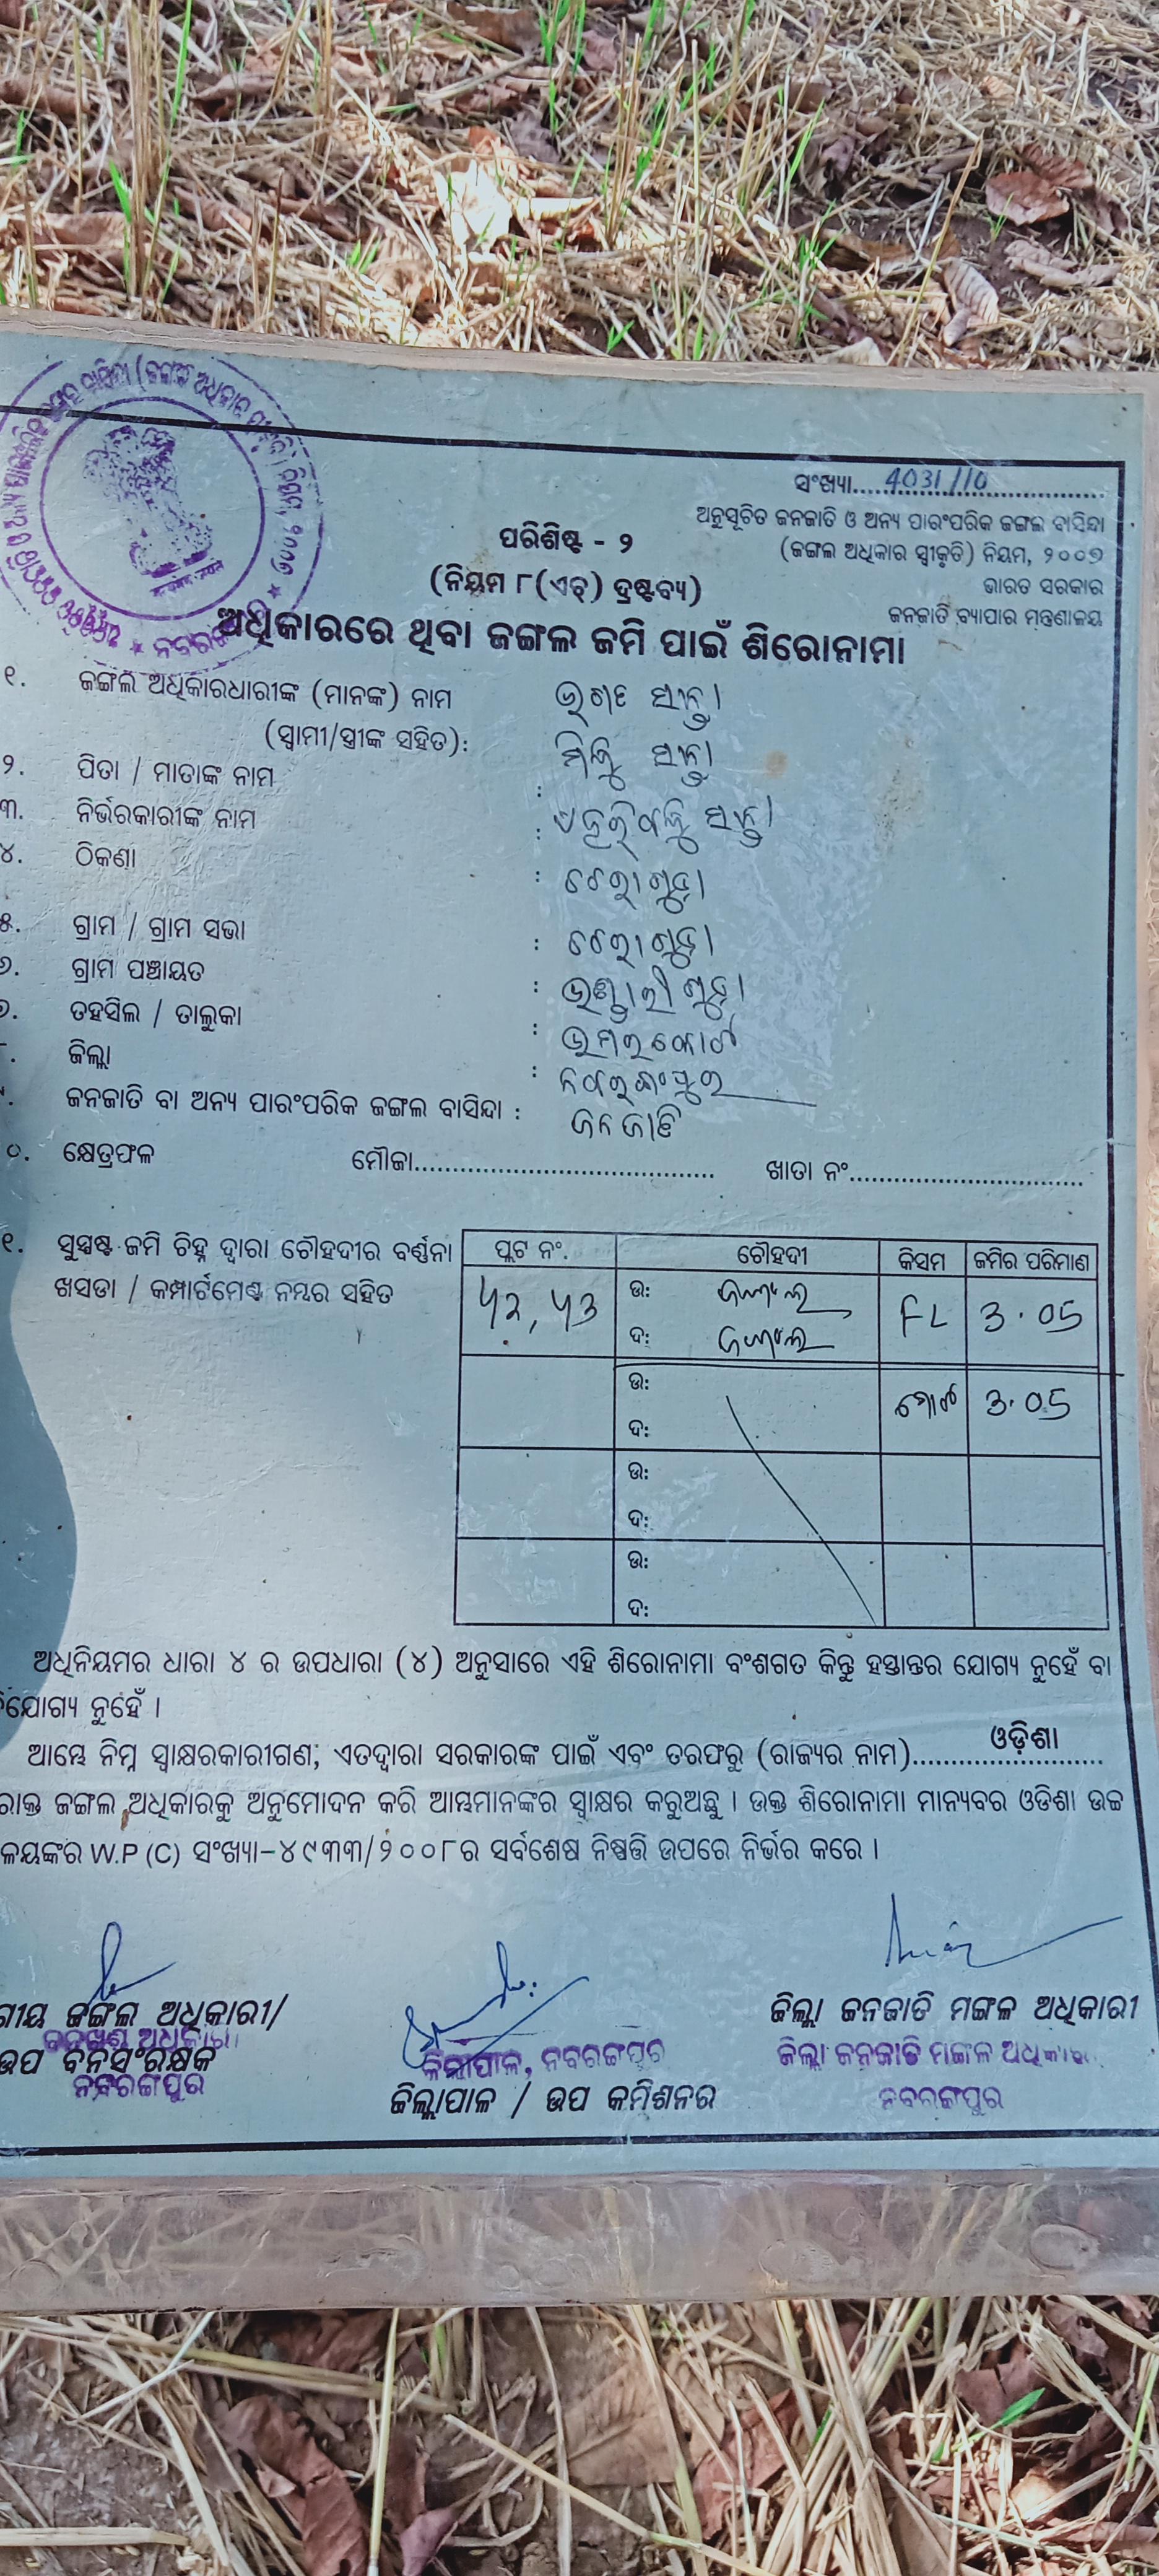 ସଂଖ୍ୟା....4031/10....
ଅନୁସୂଚିତ ଜନଜାତି ଓ ଅନ୍ୟ ପାରଂପରିକ ଜଙ୍ଗଲ ବାସିନ୍ଦା
(ଜଙ୍ଗଲ ଅଧିକାର ସ୍ୱୀକୃତି) ନିୟମ, ୨୦୦୭
ଭାରତ ସରକାର
ଜନଜାତି ବ୍ୟାପାର ମନ୍ତ୍ରଣାଳୟ
ପରିଶିଷ୍ଟ - ୨
(ନିୟମ ୮(ଏଚ୍) ଦ୍ରଷ୍ଟବ୍ୟ)
ଅଧିକାରରେ ଥିବା ଜଙ୍ଗଲ ଜମି ପାଇଁ ଶିରୋନାମା
୧. ଜଙ୍ଗଲ ଅଧିକାରଧାରୀଙ୍କ (ମାନଙ୍କ) ନାମ
(ସ୍ୱାମୀ/ସ୍ତ୍ରୀଙ୍କ ସହିତ):
୨. ପିତା / ମାତାଙ୍କ ନାମ :
୩. ନିର୍ଭରକାରୀଙ୍କ ନାମ :
୪. ଠିକଣା :
୫. ଗ୍ରାମ / ଗ୍ରାମ ସଭା :
୬. ଗ୍ରାମ ପଞ୍ଚାୟତ : ଭଣ୍ଡାରୀଗୁଡ଼ା
୭. ତହସିଲ / ତାଲୁକା : ଉମରକୋଟ
ଜିଲ୍ଲା : ନବରଙ୍ଗପୁର
ଜନଜାତି ବା ଅନ୍ୟ ପାରଂପରିକ ଜଙ୍ଗଲ ବାସିନ୍ଦା : ଜନଜାତି
୦. କ୍ଷେତ୍ରଫଳ ମୌଜା.................... ଖାତା ନଂ....................
୧. ସୁସ୍ପଷ୍ଟ ଜମି ଚିହ୍ନ ଦ୍ୱାରା ଚୌହଦୀର ବର୍ଣ୍ଣନା
ଖସଡା / କମ୍ପାର୍ଟମେଣ୍ଟ ନମ୍ବର ସହିତ
ପ୍ଲଟ ନଂ. ଚୌହଦୀ କିସମ ଜମିର ପରିମାଣ
ଉ: ଜଙ୍ଗଲ FL 3.05
ଦ: ଜଙ୍ଗଲ
ଉ: ମୋଟ 3.05
ଦ:
ଉ:
ଦ:
ଉ:
ଦ:
ଅଧିନିୟମର ଧାରା ୪ ର ଉପଧାରା (୪) ଅନୁସାରେ ଏହି ଶିରୋନାମା ବଂଶଗତ କିନ୍ତୁ ହସ୍ତାନ୍ତର ଯୋଗ୍ୟ ନୁହେଁ ବା
ଯୋଗ୍ୟ ନୁହେଁ ।
ଆମ୍ଭେ ନିମ୍ନ ସ୍ୱାକ୍ଷରକାରୀଗଣ; ଏତଦ୍ୱାରା ସରକାରଙ୍କ ପାଇଁ ଏବଂ ତରଫରୁ (ରାଜ୍ୟର ନାମ)........ଓଡ଼ିଶା........
ରୋକ୍ତ ଜଙ୍ଗଲ ଅଧିକାରକୁ ଅନୁମୋଦନ କରି ଆମ୍ଭମାନଙ୍କର ସ୍ୱାକ୍ଷର କରୁଅଛୁ । ଉକ୍ତ ଶିରୋନାମା ମାନ୍ୟବର ଓଡିଶା ଉଚ୍ଚ
ଳୟଙ୍କର W.P (C) ସଂଖ୍ୟା-୪୯୩୩/୨୦୦୮ର ସର୍ବଶେଷ ନିଷ୍ପତ୍ତି ଉପରେ ନିର୍ଭର କରେ ।
ଗୀୟ ଜଙ୍ଗଲ ଅଧିକାରୀ/
ବନଖଣ୍ଡ ଅଧିକାରୀ
ଉପ ବନସଂରକ୍ଷକ
ନବରଙ୍ଗପୁର
ଜିଲ୍ଲାପାଳ, ନବରଙ୍ଗପୁର
ଜିଲ୍ଲାପାଳ / ଉପ କମିଶନର
ଜିଲ୍ଲା ଜନଜାତି ମଙ୍ଗଳ ଅଧିକାରୀ
ଜିଲ୍ଲା ଜନଜାତି ମଙ୍ଗଳ ଅଧିକାରୀ
ନବରଙ୍ଗପୁର